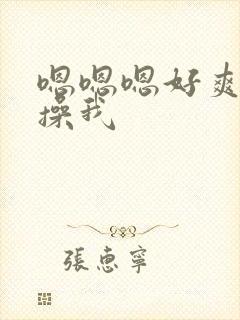 嗯嗯嗯好爽
操我
張惠寧